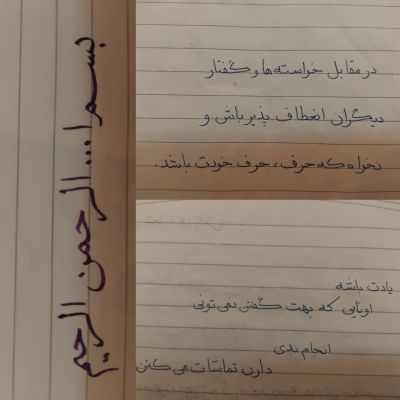 بسم ا... الرحمن الرحیم
در مقابل خواسته ها و گفتار
دیگران انعطاف پذیر باش و
نخواه که حرف، حرف خودت باشد.
یادت باشه
اونایی که بهت گفتن نمی تونی
انجام بدی
دارن تماشات می کنن